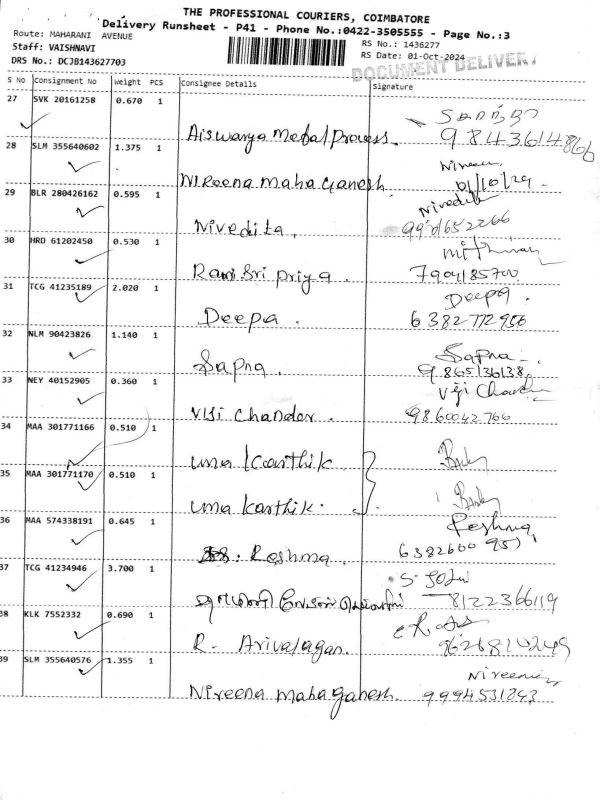 THE PROFESSIONAL COURIERS, COIMBATORE
Delivery Runsheet - P41 - Phone No.:0422-3505555 - Page No.:3
Route: MAHARANI AVENUE
RS No.: 1436277
Staff: VAISHNAVI
RS Date: 01-Oct-2024
DRS No.: DCJB143627703
DOCUMENT DELIVERY
S No Consignment No Weight PCS Consignee Details Signature
27 SVK 20161258 0.670 1
Aiswarya Metal Process. 9843614866
28 SLM 355640602 1.375 1
Nireena Maha Ganesh. 01/10/24.
29 BLR 280426162 0.595 1 Nivedita
Nivedita.
30 HRD 61202450 0.530 1
Rani Sri Priya. 7904185700
31 TCG 41235189 2.020 1 Deepa.
Deepa. 6382772956
32 NLM 90423826 1.140 1 Sapna
Sapna. 9865136138
33 NEY 40152905 0.360 1 Viji Chander
Viji Chander. 9860042766
34 MAA 301771166 0.510 1
Uma Karthik
35 MAA 301771170 0.510 1
Uma Karthik.
36 MAA 574338191 0.645 1 Reshma
Reshma. 6382600951
37 TCG 41234946 3.700 1
8122366119
38 KLK 7552332 0.690 1
R. Arivalagan. 9626810249
39 SLM 355640576 1.355 1 Nireena
Nireena Maha Ganesh. 9994531843